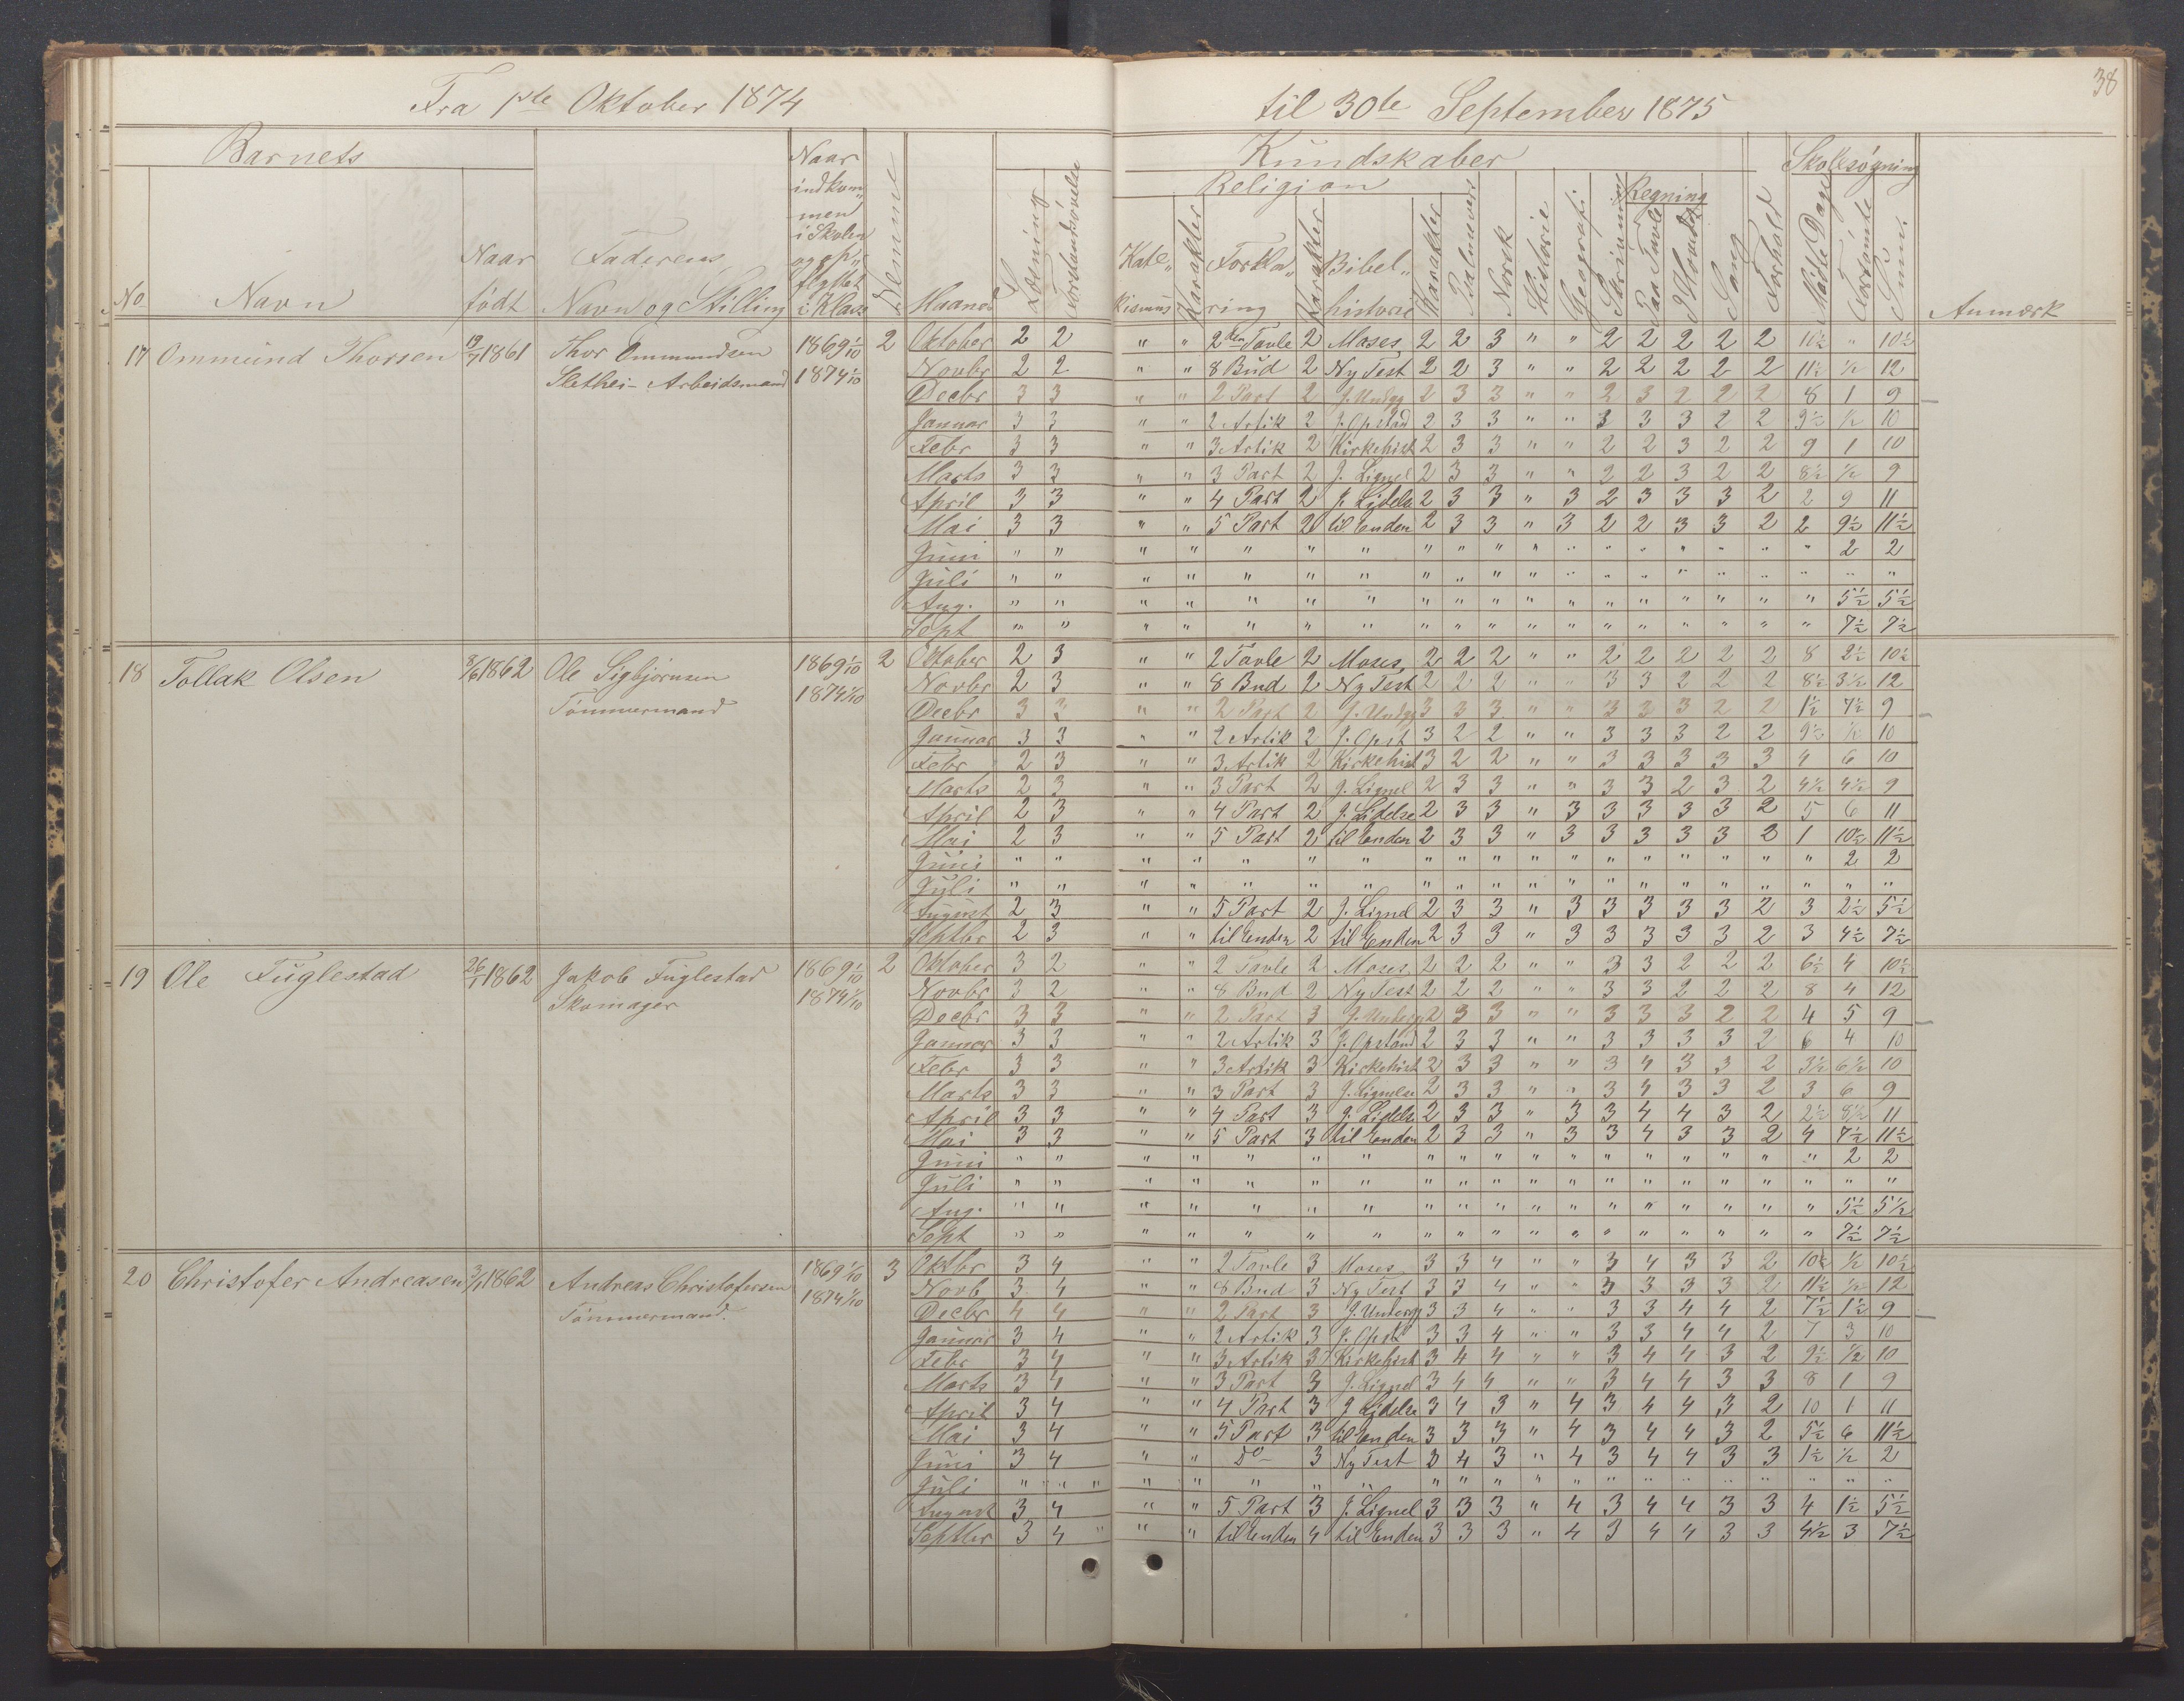 38
Fra 1ste Oktober 1874 til 30te September 1875
Barnets Kundskaber Skolesøgning
Religion Regning
No Navn Naar født Faderens Navn og Stilling Naar indkommen i Skolen og opflyttet i Klass Nemme Maaned Læsning Forstandsøvelse Katekismus Karakter Forklaring Karakter Bibelhistorie Karakter Psalmevers Norsk Historie Geografi Skrivning Paa Tavle I Hovedet Sang Forhold Mødte Dage Forsømte Sum. Anmærk
17 Ommund Thorsen 19/7 1861 Thor Ommundsen 1869 1/10 2 Oktober 2 2 " " 2den Tavle 2 Moses 2 2 3 " " 2 2 2 2 2 10½ " 10½
Slethei- Arbeidsmand 1874 1/10 Novbr 2 2 " " 8 Bud 2 Ny Test 2 2 3 " " 2 2 2 2 2 11½ ½ 12
Decbr 3 3 " " 2 Part 2 J. Undgg 2 3 3 " " 2 3 2 2 2 8 1 9
Januar 3 3 " " 2 Artik 2 J. Opstad 2 3 3 " " 3 3 3 2 2 9½ ½ 10
Febr 3 3 " " 3 Artik 2 Kirkehist 2 3 3 " " 2 2 3 2 2 9 1 10
Marts 3 3 " " 3 Part 2 J. Lignel 2 3 3 " " 2 2 3 2 2 8½ ½ 9
April 3 3 " " 4 Part 2 J. Lidelse 2 3 3 " 3 2 3 3 3 2 2 9 11
Mai 3 3 " " 5 Part 2 til Enden 2 3 3 " 3 2 2 3 3 2 2 9½ 11½
Juni " " " " " " " " " " " " " " " " " " 2 2
Juli " " " " " " " " " " " " " " " " " " " "
Aug. " " " " " " " " " " " " " " " " " " 5½ 5½
Sept " " " " " " " " " " " " " " " " " " 7½ 7½
18 Tollak Olsen 8/6 1862 Ole Sigbjørnsen 1869 1/10 2 Oktober 2 3 " " 2 Tavle 2 Moses 2 2 2 " " 2 2 2 2 2 8 2½ 10½
Tømmermand 1874 1/10 Novbr 2 3 " " 8 Bud 2 Ny Test 2 2 2 " " 3 3 2 2 2 8½ 3½ 12
Decbr 3 3 " " 2 Part 2 J. Undgg 3 3 3 " " 3 3 3 2 2 1½ 7½ 9
Januar 3 3 " " 2 Artik 2 J. Opst 3 2 2 " " 3 3 3 2 2 9½ ½ 10
Febr 2 3 " " 3 Artik 2 Kirkehist 3 2 2 " " 3 3 3 3 3 4 6 10
Marts 2 3 " " 3 Part 2 J. Lignel 2 3 3 " " 3 3 2 3 2 4½ 4½ 9
April 2 3 " " 4 Part 2 J. Lidelse 2 3 3 " 3 3 3 3 3 2 5 6 11
Mai 2 3 " " 5 Part 2 til Enden 2 3 3 " 3 3 3 3 3 2 1 10½ 11½
Juni " " " " " " " " " " " " " " " " " " 2 2
Juli " " " " " " " " " " " " " " " " " " " "
August 2 3 " " 5 Part 2 J. Lignel 2 3 3 " 3 3 3 3 3 2 3 2½ 5½
Septbr 2 3 " " til Enden 2 til Enden 2 3 3 " 3 3 3 3 3 2 3 4½ 7½
19 Ole Fuglestad 26/1 1862 Jakob Fuglestad 1869 1/10 2 Oktober 3 2 " " 2 Tavle 2 Moses 2 2 2 " " 3 3 2 2 2 6½ 4 10½
Skomager 1874 1/10 Novbr 3 2 " " 8 Bud 2 Ny Test 2 2 2 " " 3 3 2 2 2 8 4 12
Decbr 3 3 " " 2 Part 3 J. Undergg 2 3 3 " " 3 3 3 2 2 4 5 9
Januar 3 3 " " 2 Artik 3 J. Opstand 2 3 3 " " 3 3 3 3 2 6 4 10
Febr 3 3 " " 3 Artik 3 Kirkehist 2 3 3 " " 3 4 3 3 2 3½ 6½ 10
Marts 3 3 " " 3 Part 3 J. Lignelse 2 3 3 " " 3 4 3 3 2 3 6 9
April 3 3 " " 4 Part 3 J. Lidelse 2 3 3 " 3 3 4 4 3 2 2½ 8½ 11
Mai 3 3 " " 5 Part 3 til Enden 2 3 3 " 3 3 4 3 3 2 4 7½ 11½
Juni " " " " " " " " " " " " " " " " " " 2 2
Juli " " " " " " " " " " " " " " " " " " " "
Aug. " " " " " " " " " " " " " " " " " " 5½ 5½
Sept " " " " " " " " " " " " " " " " " " 7½ 7½
20 Christofer Andreasen 1862 Andreas Christofersen 1869 1/10 3 Oktbr 3 4 " " 2 Tavle 3 Moses 3 3 4 " " 3 4 3 3 2 10 ½ 10½
Tømmermand. 1874 1/10 Novb 3 4 " " 8 Bud 3 Ny Test 3 3 4 " " 3 3 3 3 2 11½ ½ 12
Decbr 4 4 " " 2 Part 3 J. Undergg 3 3 4 " " 3 3 4 4 2 7½ 1½ 9
Januar 3 4 " " 2 Artik 3 J. Opst 3 3 4 " " 3 3 4 4 2 7 3 10
Febr 3 4 " " 3 Artik 3 Kirkehist 3 4 4 " " 3 4 4 3 2 9½ ½ 10
Marts 3 4 " " 3 Part 3 J. Lignel 3 4 4 " " 3 4 4 3 3 8 1 9
April 3 4 " " 4 Part 3 J Lidelse 3 4 3 " 4 3 4 4 3 2 10 1 11
Mai 3 4 " " 5 Part 3 til Enden 3 3 3 " 4 3 4 4 3 2 5½ 6 11½
Juni 3 4 " " Do 3 Ny Test 3 4 3 " 4 3 4 4 3 3 1½ ½ 2
Juli " " " " " " " " " " " " " " " " " " " " "
August 3 4 " " 5 Part 3 J. Lignel 3 3 3 " 4 3 4 4 3 3 4 1½ 5½
Septbr 3 4 " " " til Enden 4 til Enden 3 3 3 " 4 3 4 4 3 3 4½ 3 7½